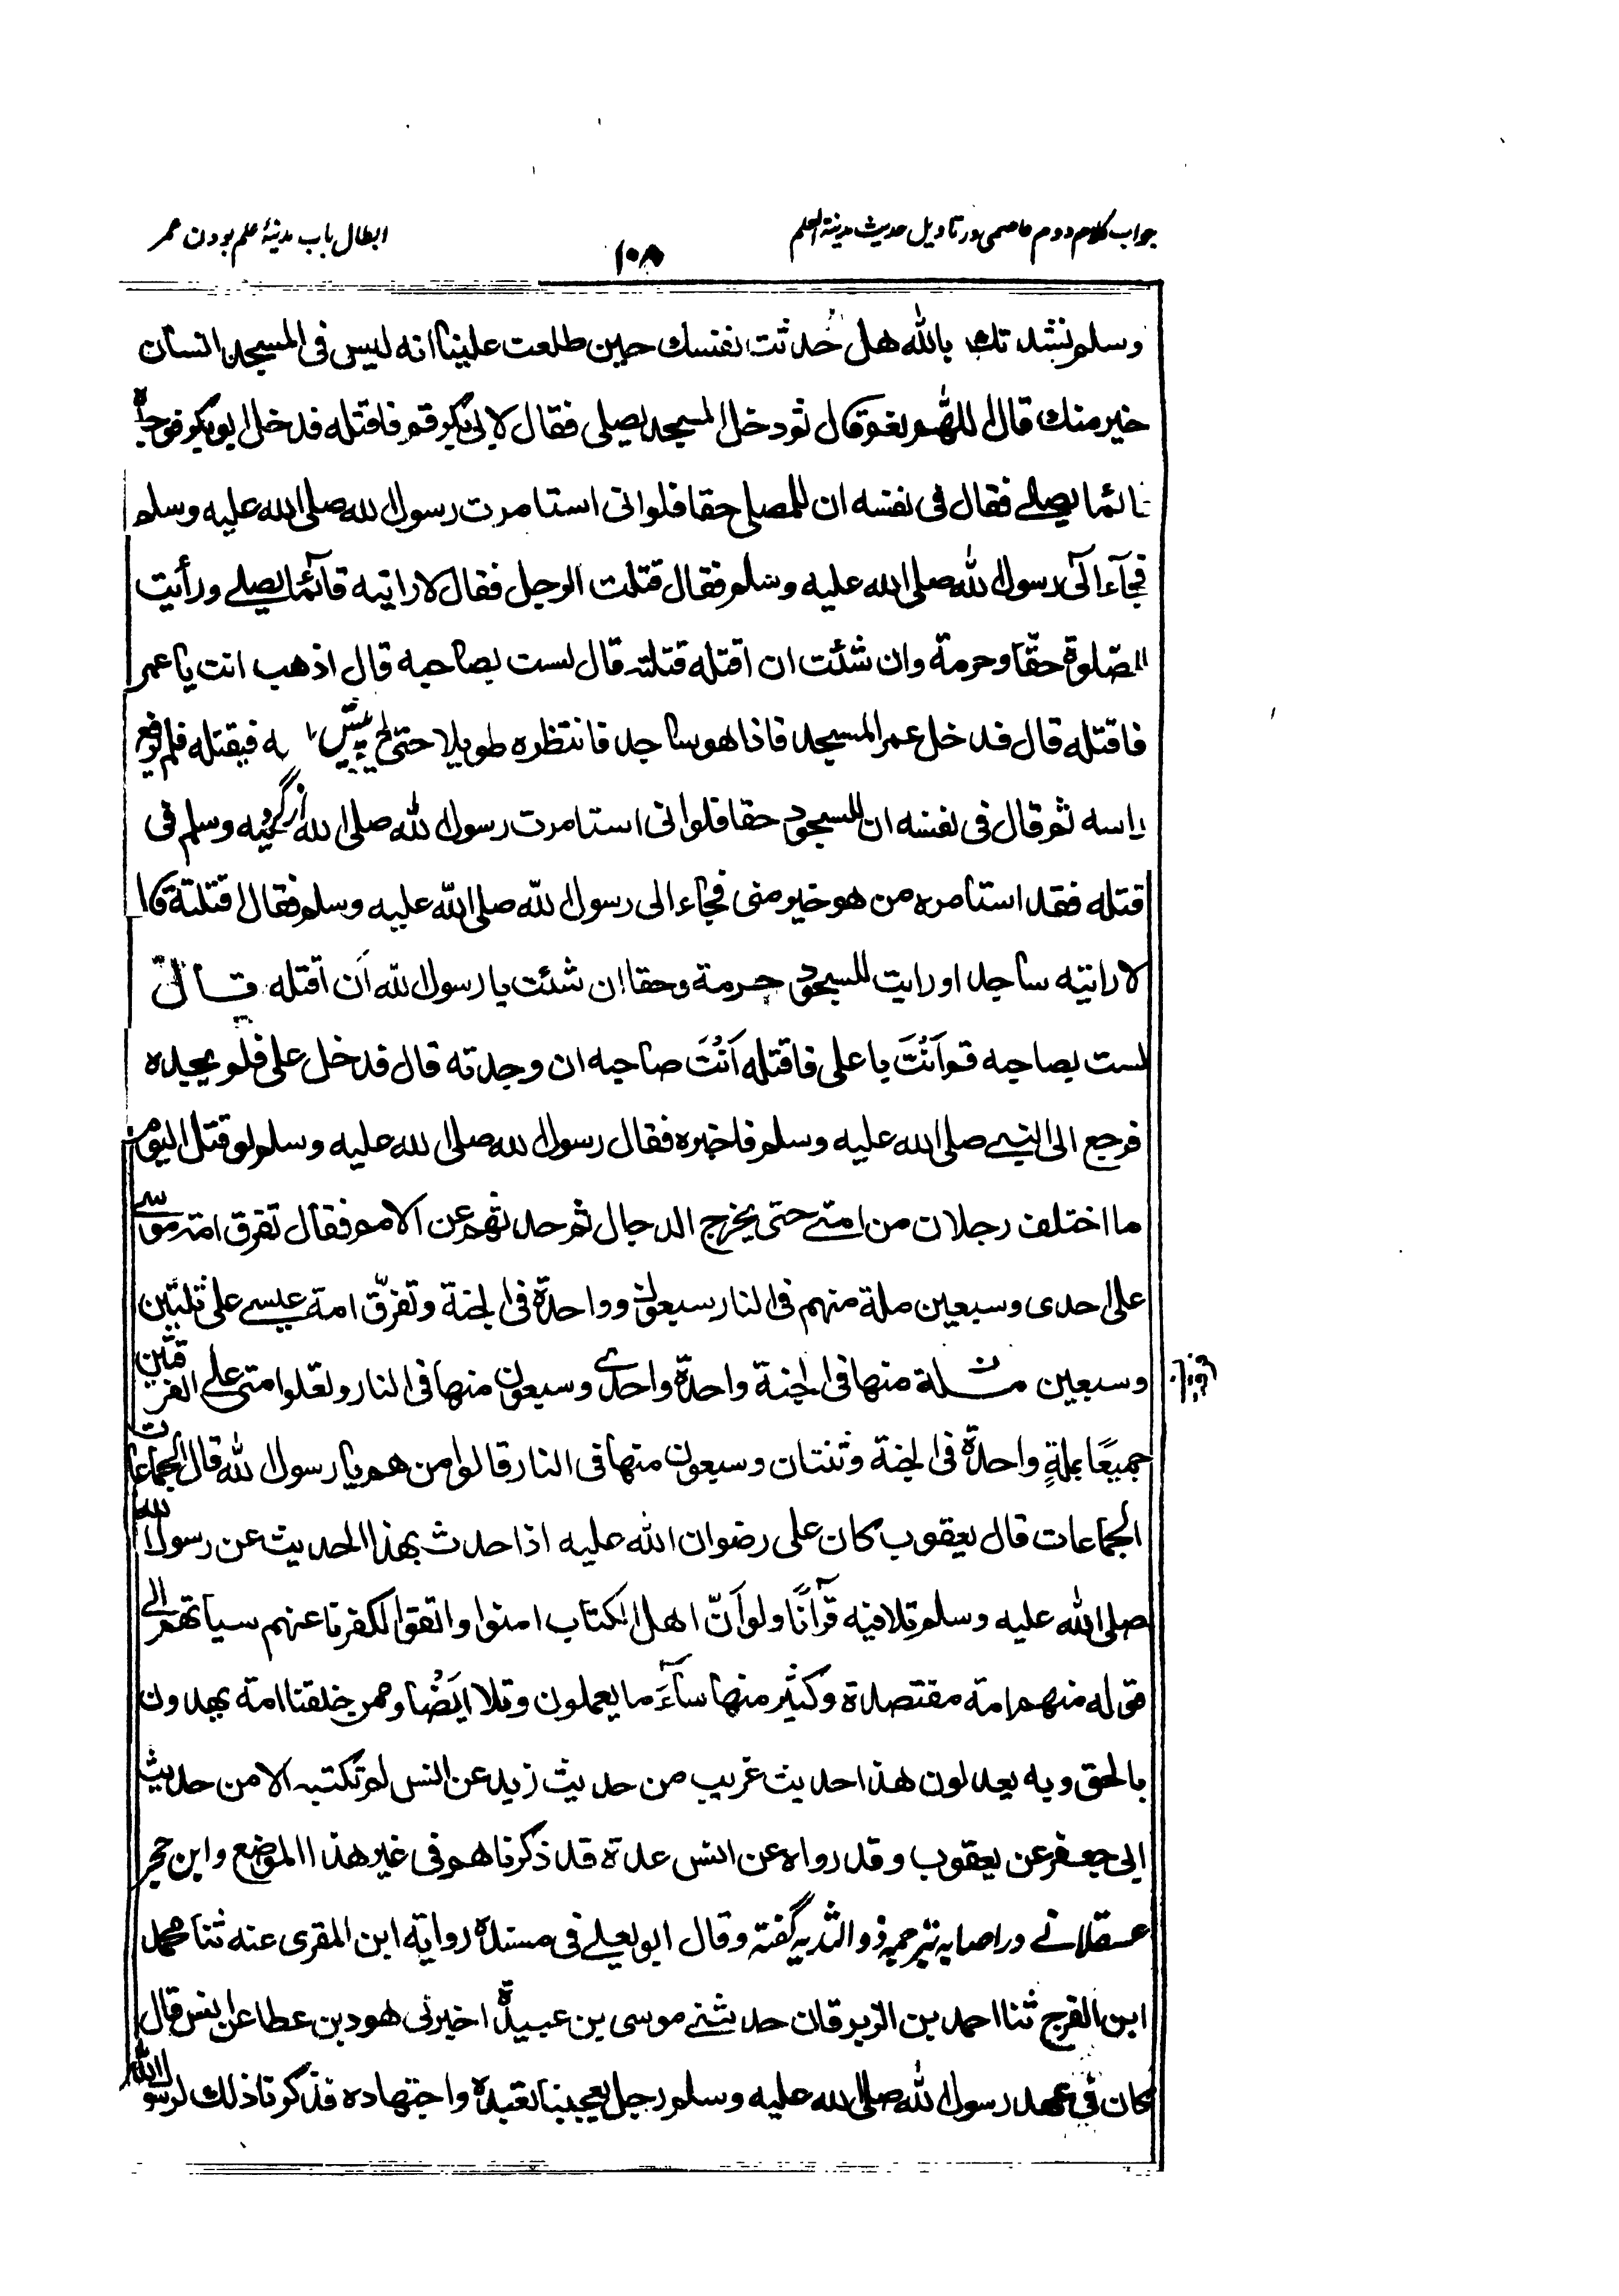 جواب كلام دوم عاصمى در تاويل حديث مدينة العلم
۱۰۸
ابطال باب مدينهٔ علم بودن عمر
وسلم نشدتك بالله هل حدثت نفسك حين طلعت علينا انه ليس فى المسجد انسان
خير منك قال اللهم نعم قال ثم دخل المسجد يصلى فقال لابى بكر قم فاقتله فدخل ابو بكر فوجده
قائما يصلے فقال فى نفسه ان للمصلى حقا فلوانى استامرت رسول الله صلى الله عليه وسلم
فجآء الى رسول الله صلى الله عليه وسلم فقال قتلت الرجل فقال لا رايته قآئما يصلے ورأيت
الصّلوة حقّا وحرمة وان شئت ان اقتله قتلته قال لست بصاحبه قال اذهب انت يا عمر
فاقتله قال فدخل عمر المسجد فاذا هو ساجد فانتظره طويلا حتى فيقتله فلم يرفع
راسه ثم قال فى نفسه ان للسجود حقا فلوانى استامرت رسول الله صلى الله عليه وسلم فى
قتله فقد استامره من هو خير منى فجاء الى رسول الله صلى الله عليه وسلم فقال اقتلته قال
لا رايته ساجدا ورايت للسجود حرمة وحقا ان شئت يا رسول الله ان اقتله قال
لست بصاحبه قم اَنْتَ يا على فاقتله اَنْتَ صاحبه ان وجدته قال فدخل على فلم يجده
فرجع الى النبے صلى الله عليه وسلم فاخبره فقال رسول الله صلى الله عليه وسلم لو قتل اليوم
ما اختلف رجلان من امتے حتى يخرج الدجال ثم حدثهم عن الامم فقال تفرق امة موسے
على احدى وسبعين ملة منهم فى النار سبعون وواحدة فى الجنة وتفرّق امة عيسے على ثنتين
وسبعين ملة منها فى الجنة واحدة واحدى وسبعون منها فى النار وتعلوا متى على الفرقتين
جميعًا بملةٍ واحدة فى الجنة وثنتان وسبعون منها فى النار قالوا من هم يا رسول الله قال الجماعات
الجماعات قال يعقوب كان على رضوان الله عليه اذا حدث بهذا الحديث عن رسول الله
صلى الله عليه وسلم تلا فيه قرآنًا ولو اَنّ اهل الكتاب امنوا واتقوا لكفرنا عنهم سياتهم الى
قوله منهم امة مقتصدة وكثير منها سآءَ ما يعملون وتلا ايَضًا وممن خلقنا امة يهدون
بالحق وبه يعدلون هذا حديث غريب من حديث زيد عن انس لم نكتبه الا من حديث
ابى جعفر عن يعقوب وقد رواه عن انس عدة قد ذكرناهم فى غير هذا الموضع وابن حجر
عسقلانے در اصابه بترجمهٔ ذو الثديه گفته وقال ابو يعلے فى مسنده رواية ابن المقرى عنه ثنا محمد
ابن الفرج ثنا احمد بن الزبرقان حدثنے موسى بن عبيدة اخبرنى هود بن عطا عن انس قال
كان فى عهد رسول الله صلى الله عليه وسلم رجل يعجبنا تعبده واجتهاده فذكرنا ذلك لرسول الله